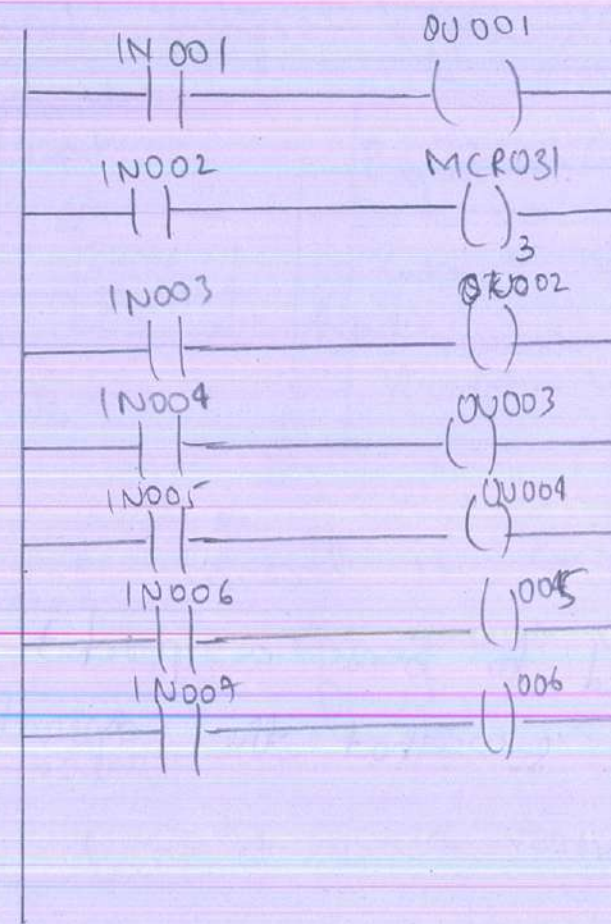 IN 001 OU 001
IN002 MCR031
3
IN003 OU002
IN004 OU003
IN005 OU004
IN006 005
IN007 006